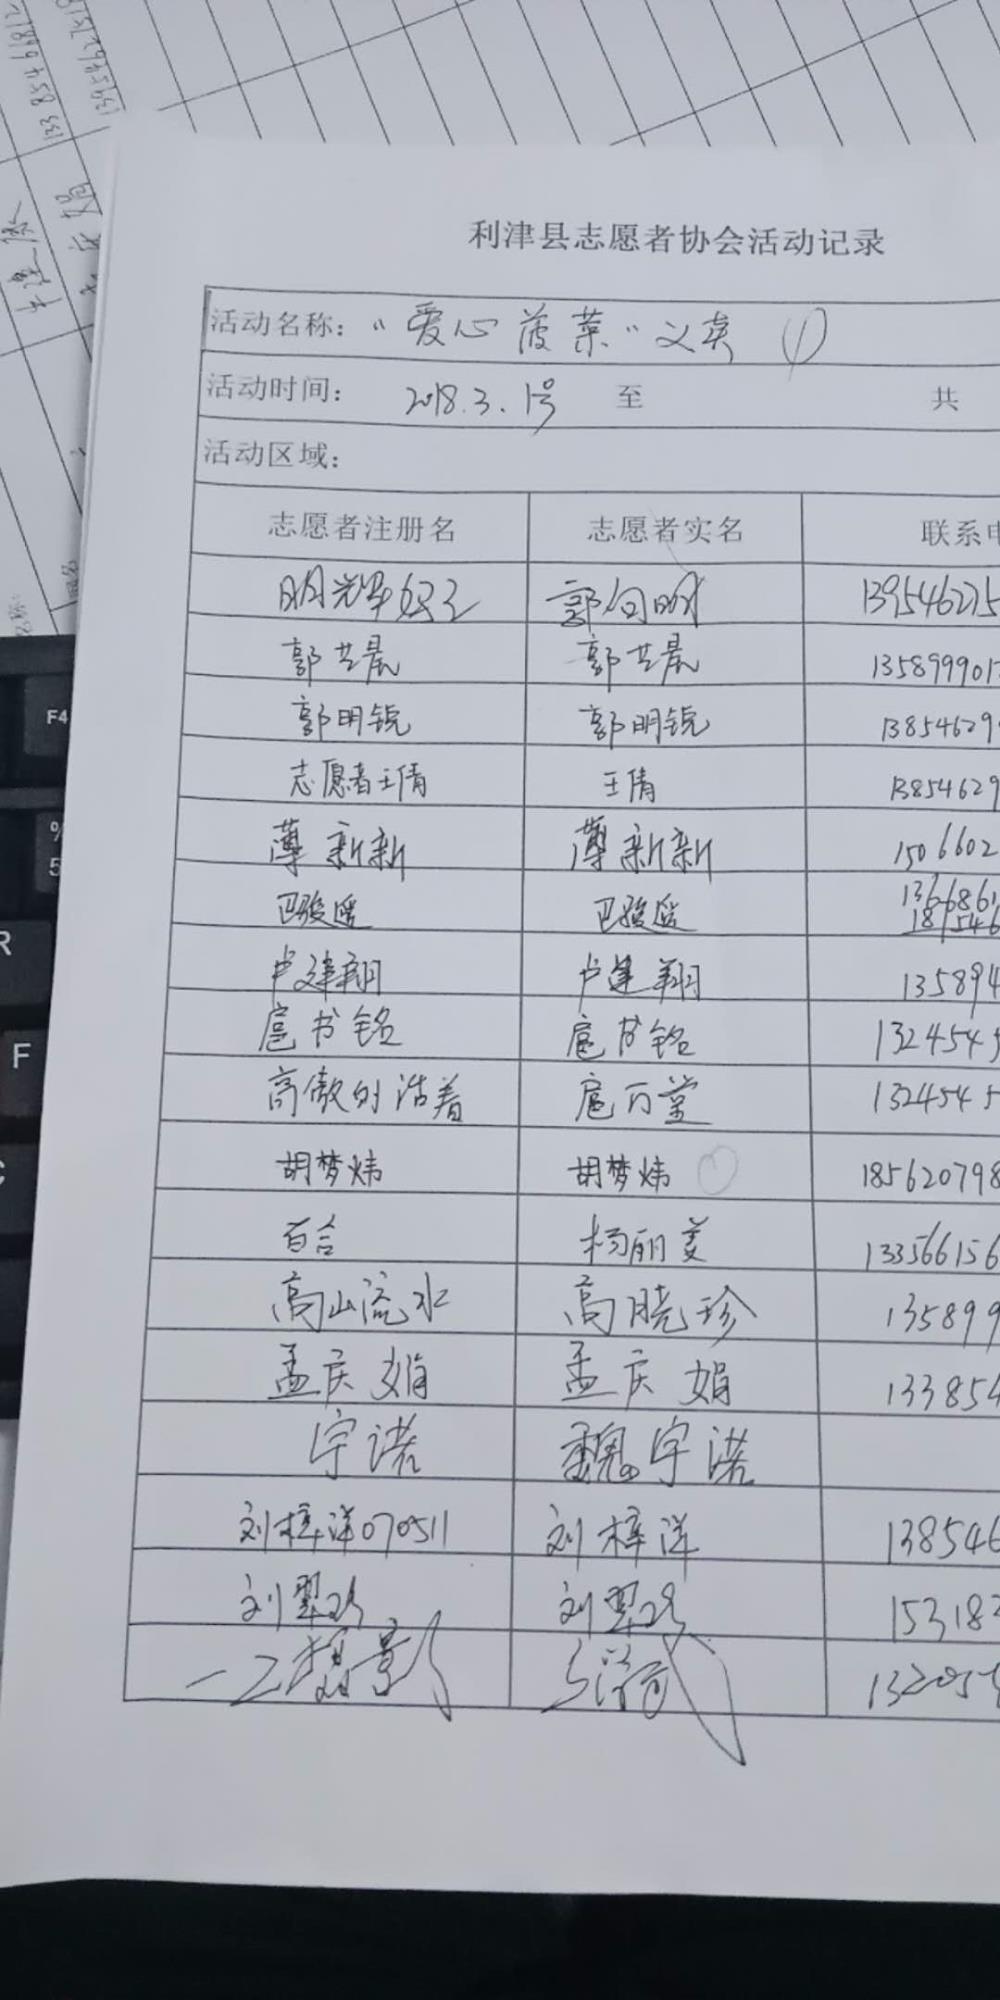 利津县志愿者协会活动记录
活动名称：“爱心菠菜”义卖 (1)
活动时间： 2018.3.1号 至 共
活动区域：
志愿者注册名 志愿者实名 联系电
郭向明 139546275
郭芸晨 郭芸晨 135899901
郭明锐 郭明锐 13854629
志愿者王倩 王倩 13854629
薄新新 薄新新 1506602
巴骏遥 巴骏遥 1366861
187546
卢建翔 卢建翔 135894
扈书铭 扈书铭 1324545
高傲的活着 扈万堂 1324545
胡梦炜 胡梦炜 185620798
百合 杨丽美 133566156
高山流水 高晓珍 135899
孟庆娟 孟庆娟 133854
宇诺 魏宇诺
刘梓洋070511 刘梓洋 138546
刘翠 刘翠 153183
132054
F4
%
5
R
F
C